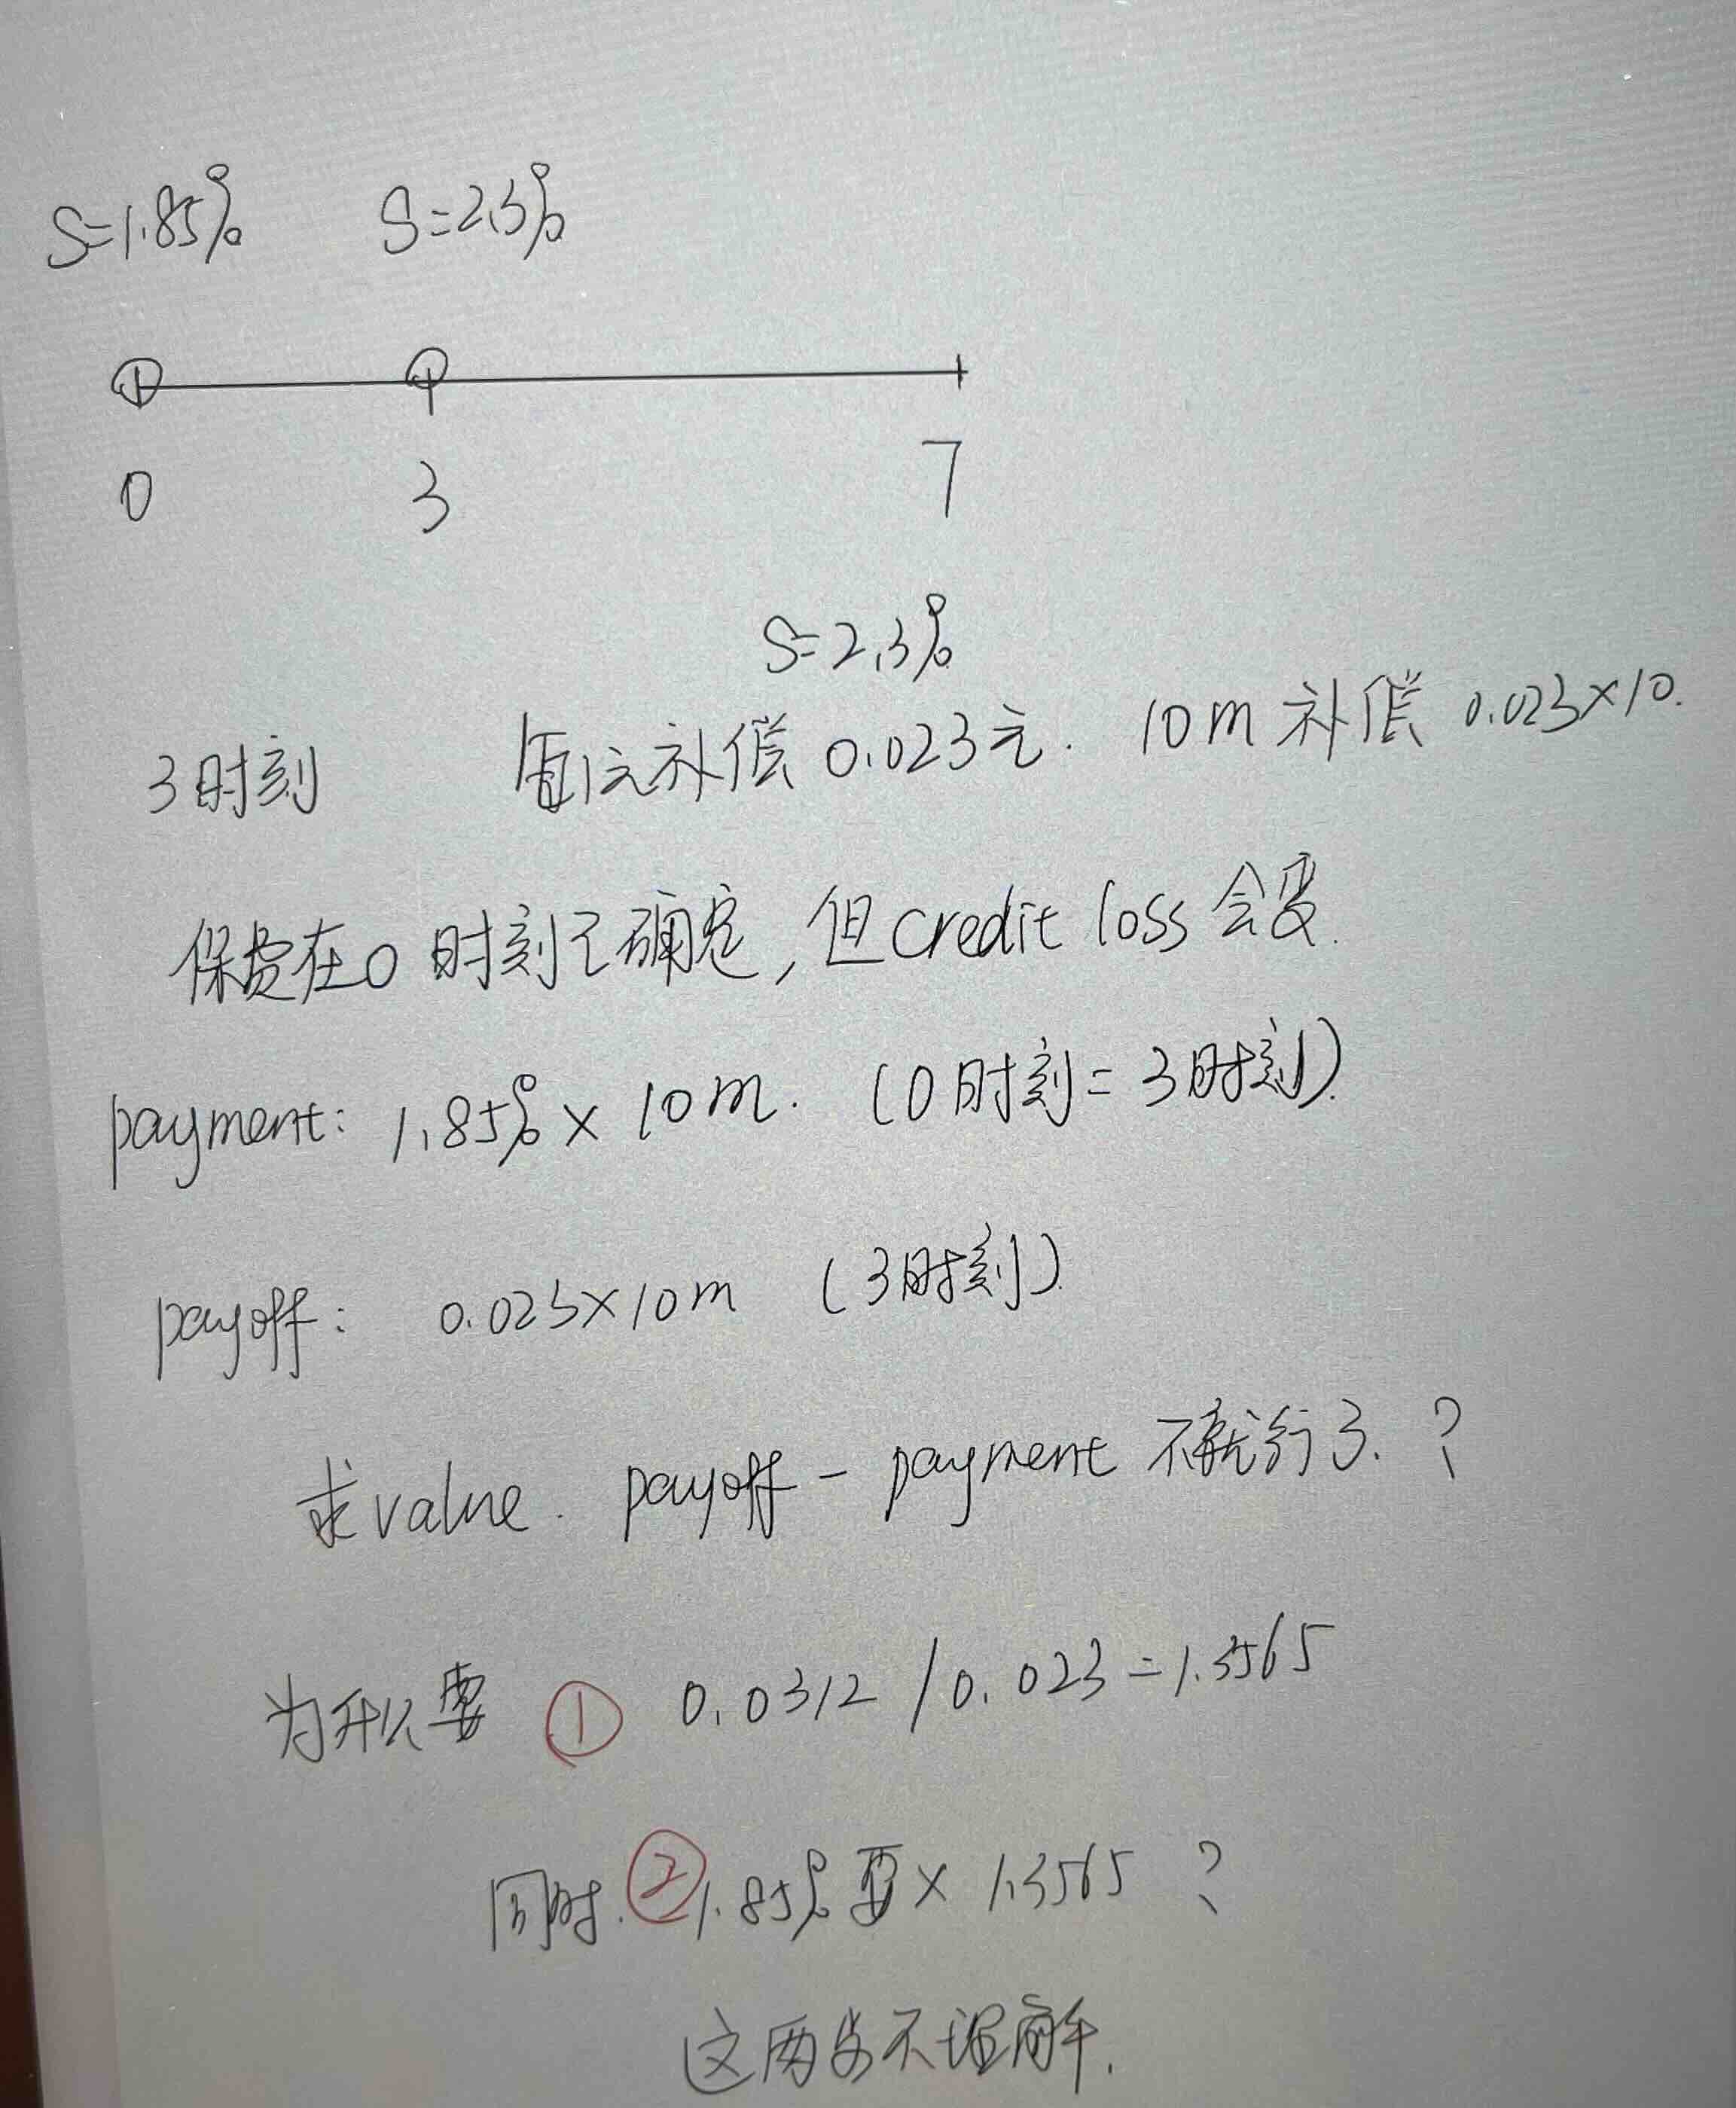 S=1.85% S=2.3%
0 3 7
S=2.3%
3时刻 每1元补偿 0.023元. 10m 补偿 0.023×10.
保费在0时刻已确定, 但 credit loss 会变.
payment: 1.85% × 10m. (0时刻=3时刻).
payoff: 0.023×10m (3时刻).
求value. payoff - payment 不就行了.?
为什么要 ① 0.0312 / 0.023 = 1.3565
同时. ② 1.85% 要 × 1.3565 ?
这两步不理解.